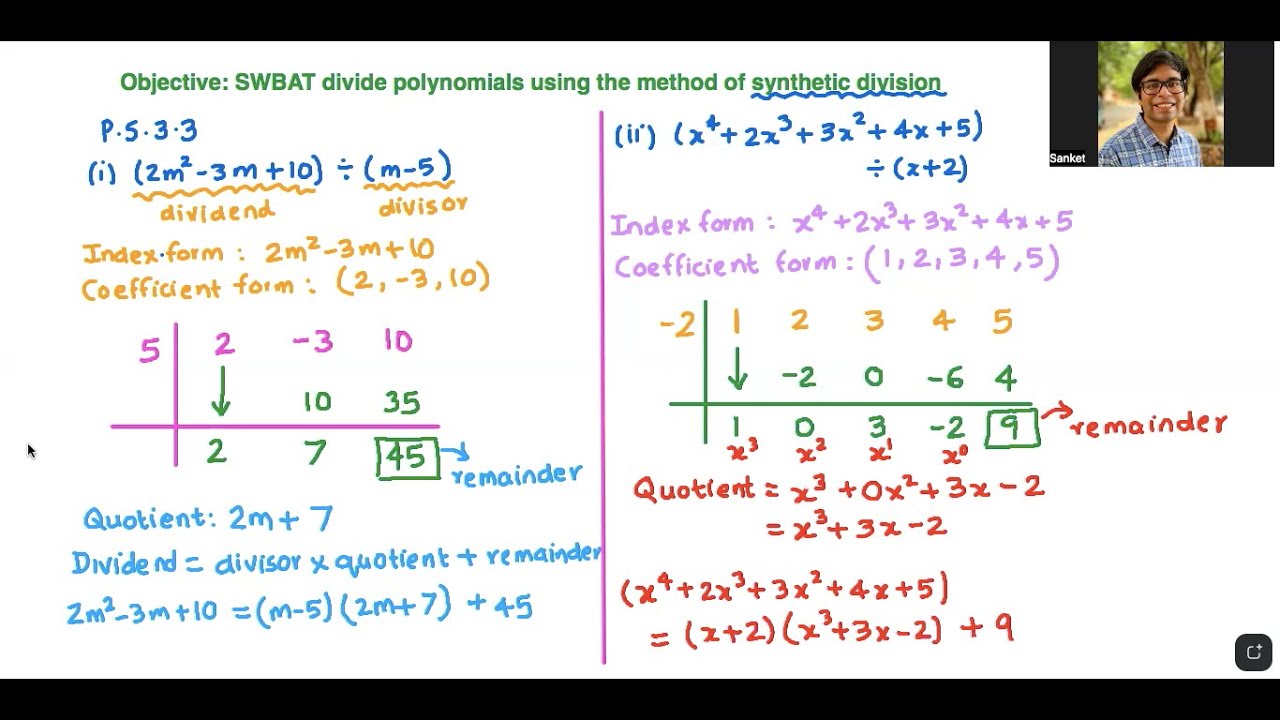 Objective: SWBAT divide polynomials using the method of synthetic division
P.S.3.3
(i) (2m²-3m+10) ÷ (m-5)
dividend divisor
Index form : 2m²-3m+10
Coefficient form : (2, -3, 10)
5 2 -3 10
↓ 10 35
2 7 45 → remainder
Quotient: 2m+7
Dividend = divisor x quotient + remainder
2m²-3m+10 = (m-5)(2m+7) + 45
(ii) (x⁴+2x³+3x²+4x+5)
÷(x+2)
Index form : x⁴+2x³+3x²+4x+5
Coefficient form : (1, 2, 3, 4, 5)
-2 1 2 3 4 5
↓ -2 0 -6 4
1 0 3 -2 9 → remainder
x³ x² x¹ x⁰
Quotient = x³+0x²+3x-2
= x³+3x-2
(x⁴+2x³+3x²+4x+5)
= (x+2)(x³+3x-2) + 9
Sanket